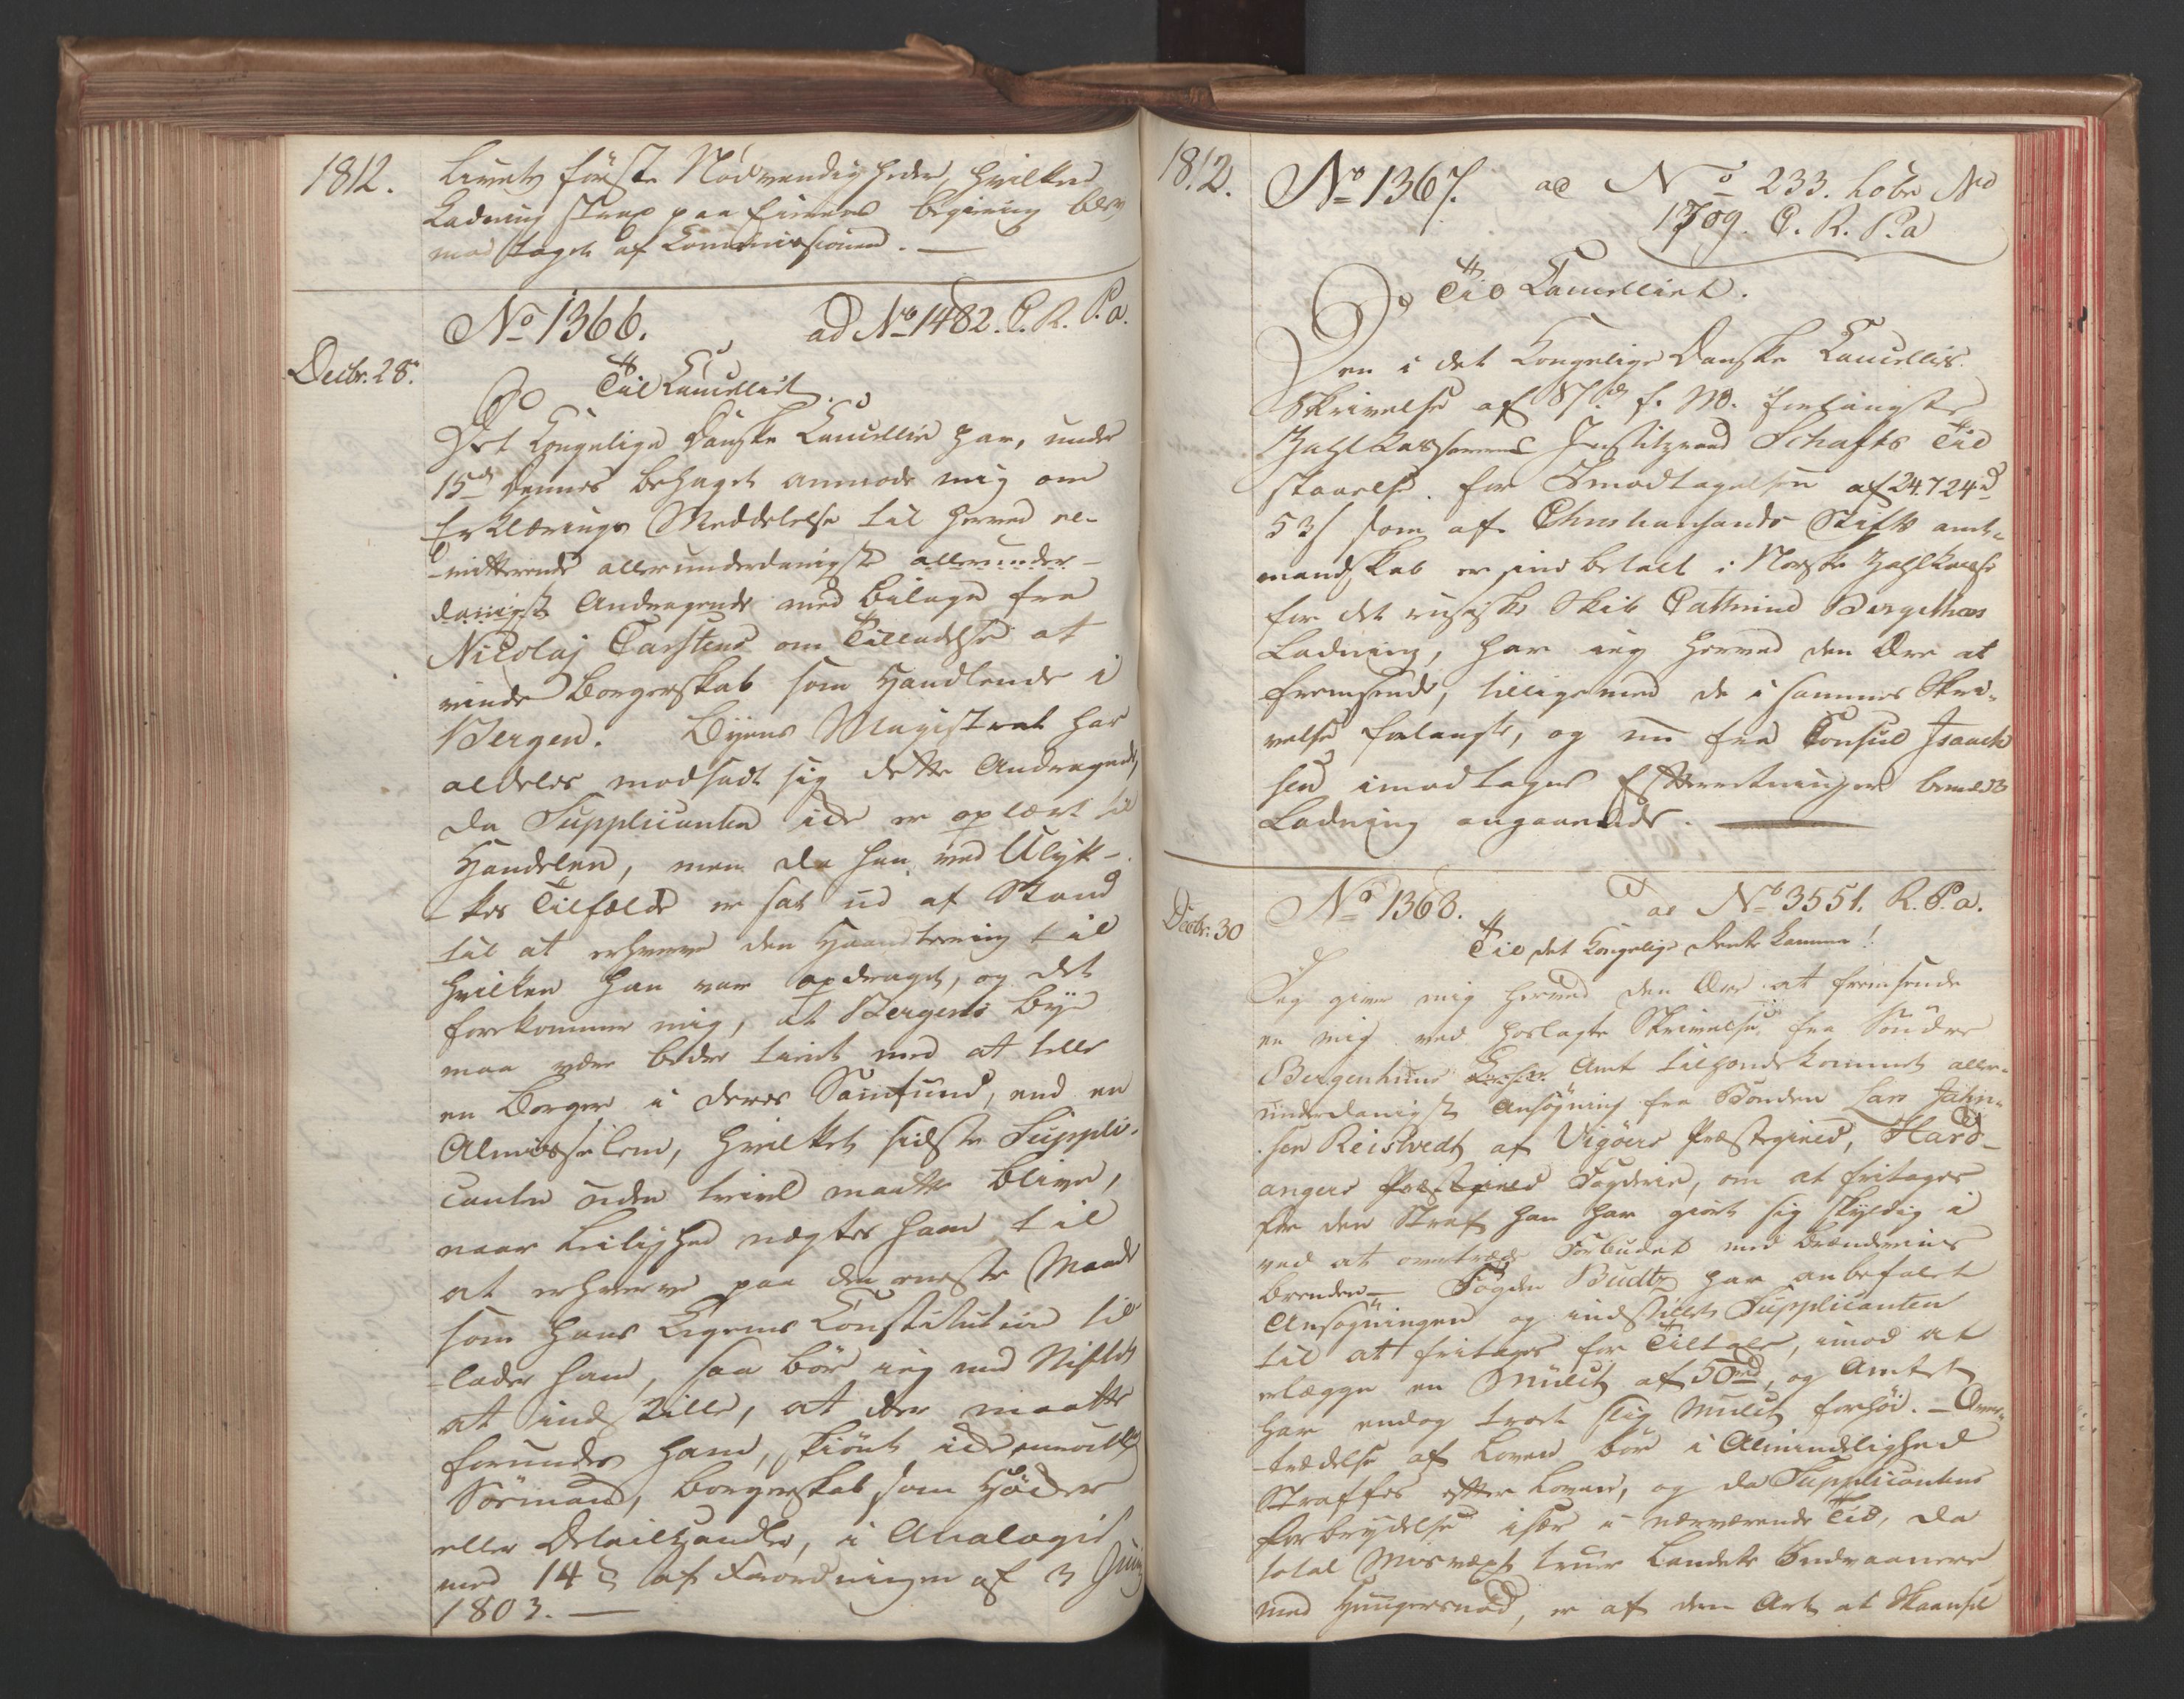 1812.
Livets første Nødvendigheder, hvilken
Ladning strax paa Eierens begiering blev
modtaget af Commissionen. —
No 1366. ad No 1482. C. R. P. a.
Decbr. 28.
Til Cancelliet.
Det Kongelige Danske Cancellie har, under
15de dennes behaget anmode mig om
Erklærings Meddelelse til herved re-
-mitterende allerunderdanigste allerunder-
danigste Andragende med Bilage fra
Nicolaj Carstens om Tilladelse at
vinde Borgerskab som Handlende i
Bergen. Byens Magistrat har
aldeles modsadt sig dette Andragende,
da Supplicanten icke er oplært til
Handelen, men da han ved Ulyk-
-kes Tilfælde er sat ud af Stand
til at erhverve den Haandtering til
hvilken han var opdraget, og det
forekommer mig, at Bergens bye
maa være bedre tient med at telle
en Borger i deres Samfund, end en
Almisselem, hvilket sidste Suppli-
canten uden tvivl maatte blive,
naar Leilighed nægtes ham til
at erhverve paa den eneste Maade
som hans Legems Constitution til-
-lader ham, saa bør jeg med Stiftet
at indstille, at der maatte
forundes ham, skiønt icke
Sømand, Borgerskab som Høcker
eller Detailhandler, i Analogie
med 14 § af Forordningen af 3 Juny
1803. —
1812.
No 1367. ad No 233. løbe No
1709. C. R. P. a
Til Cancelliet.
Den i det Kongelige Danske Cancellies
Skrivelse af f. M. forlangte
Zahlkasserer Justitzraad Schafts Til
staaelse for Imodtagelsen af 24724 rd
53 s som af Christiansands Stift amt-
mandskab er indbetalt i Norske Zahlkasse
for det russiske Skib Cathrine
Ladning, har jeg herved den Ære at
fremsende, tilligemed de i sammes Skri-
velse forlangte, og nu fra Consul Isaach
sen imodtagne Efterretninger bemeldte
Ladning angaaende. —
Decbr. 30
No 1368. ad No 3551. R. P. a.
Til det Kongelige Rente Kammer!
Jeg giver mig herved den Ære at fremsende
en mig ved hoslagte Skrivelse fra Søndre
Bergenhuus Amt tilhændekommet aller-
underdanigst Ansøgning fra Bonden Lars
-sen Reisvedt af Vigøers Præstegield, Hard-
angers Præstegield Fogderie, om at fritages
for den Straf han har giort sig skyldig i
ved at overtræde Forbudet med Brændeviins
brænden — Fogden Budtz har anbefalet
Ansøgningen og indstillet Supplicanten
til at fritages for Tiltale, imod at
erlægge en Mulct af 50 rd, og Amtet
har endog troet slig Mulct forhøi. — Over-
-trædelse af Loven bør i Almindelighed
Straffes efter Loven, og da Supplicantens
forbrydelse især i nærværende Tid, da
total Misvæxt truer Landets Indvaanere
med Hungersnød, er af den Art at Skaansel